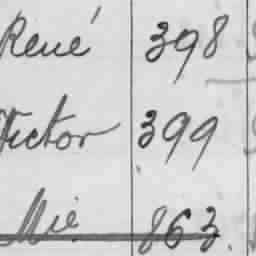 René 398
Victor 399
Mié 863.